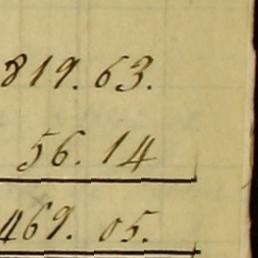 819. 63.
56. 14
469. 05.